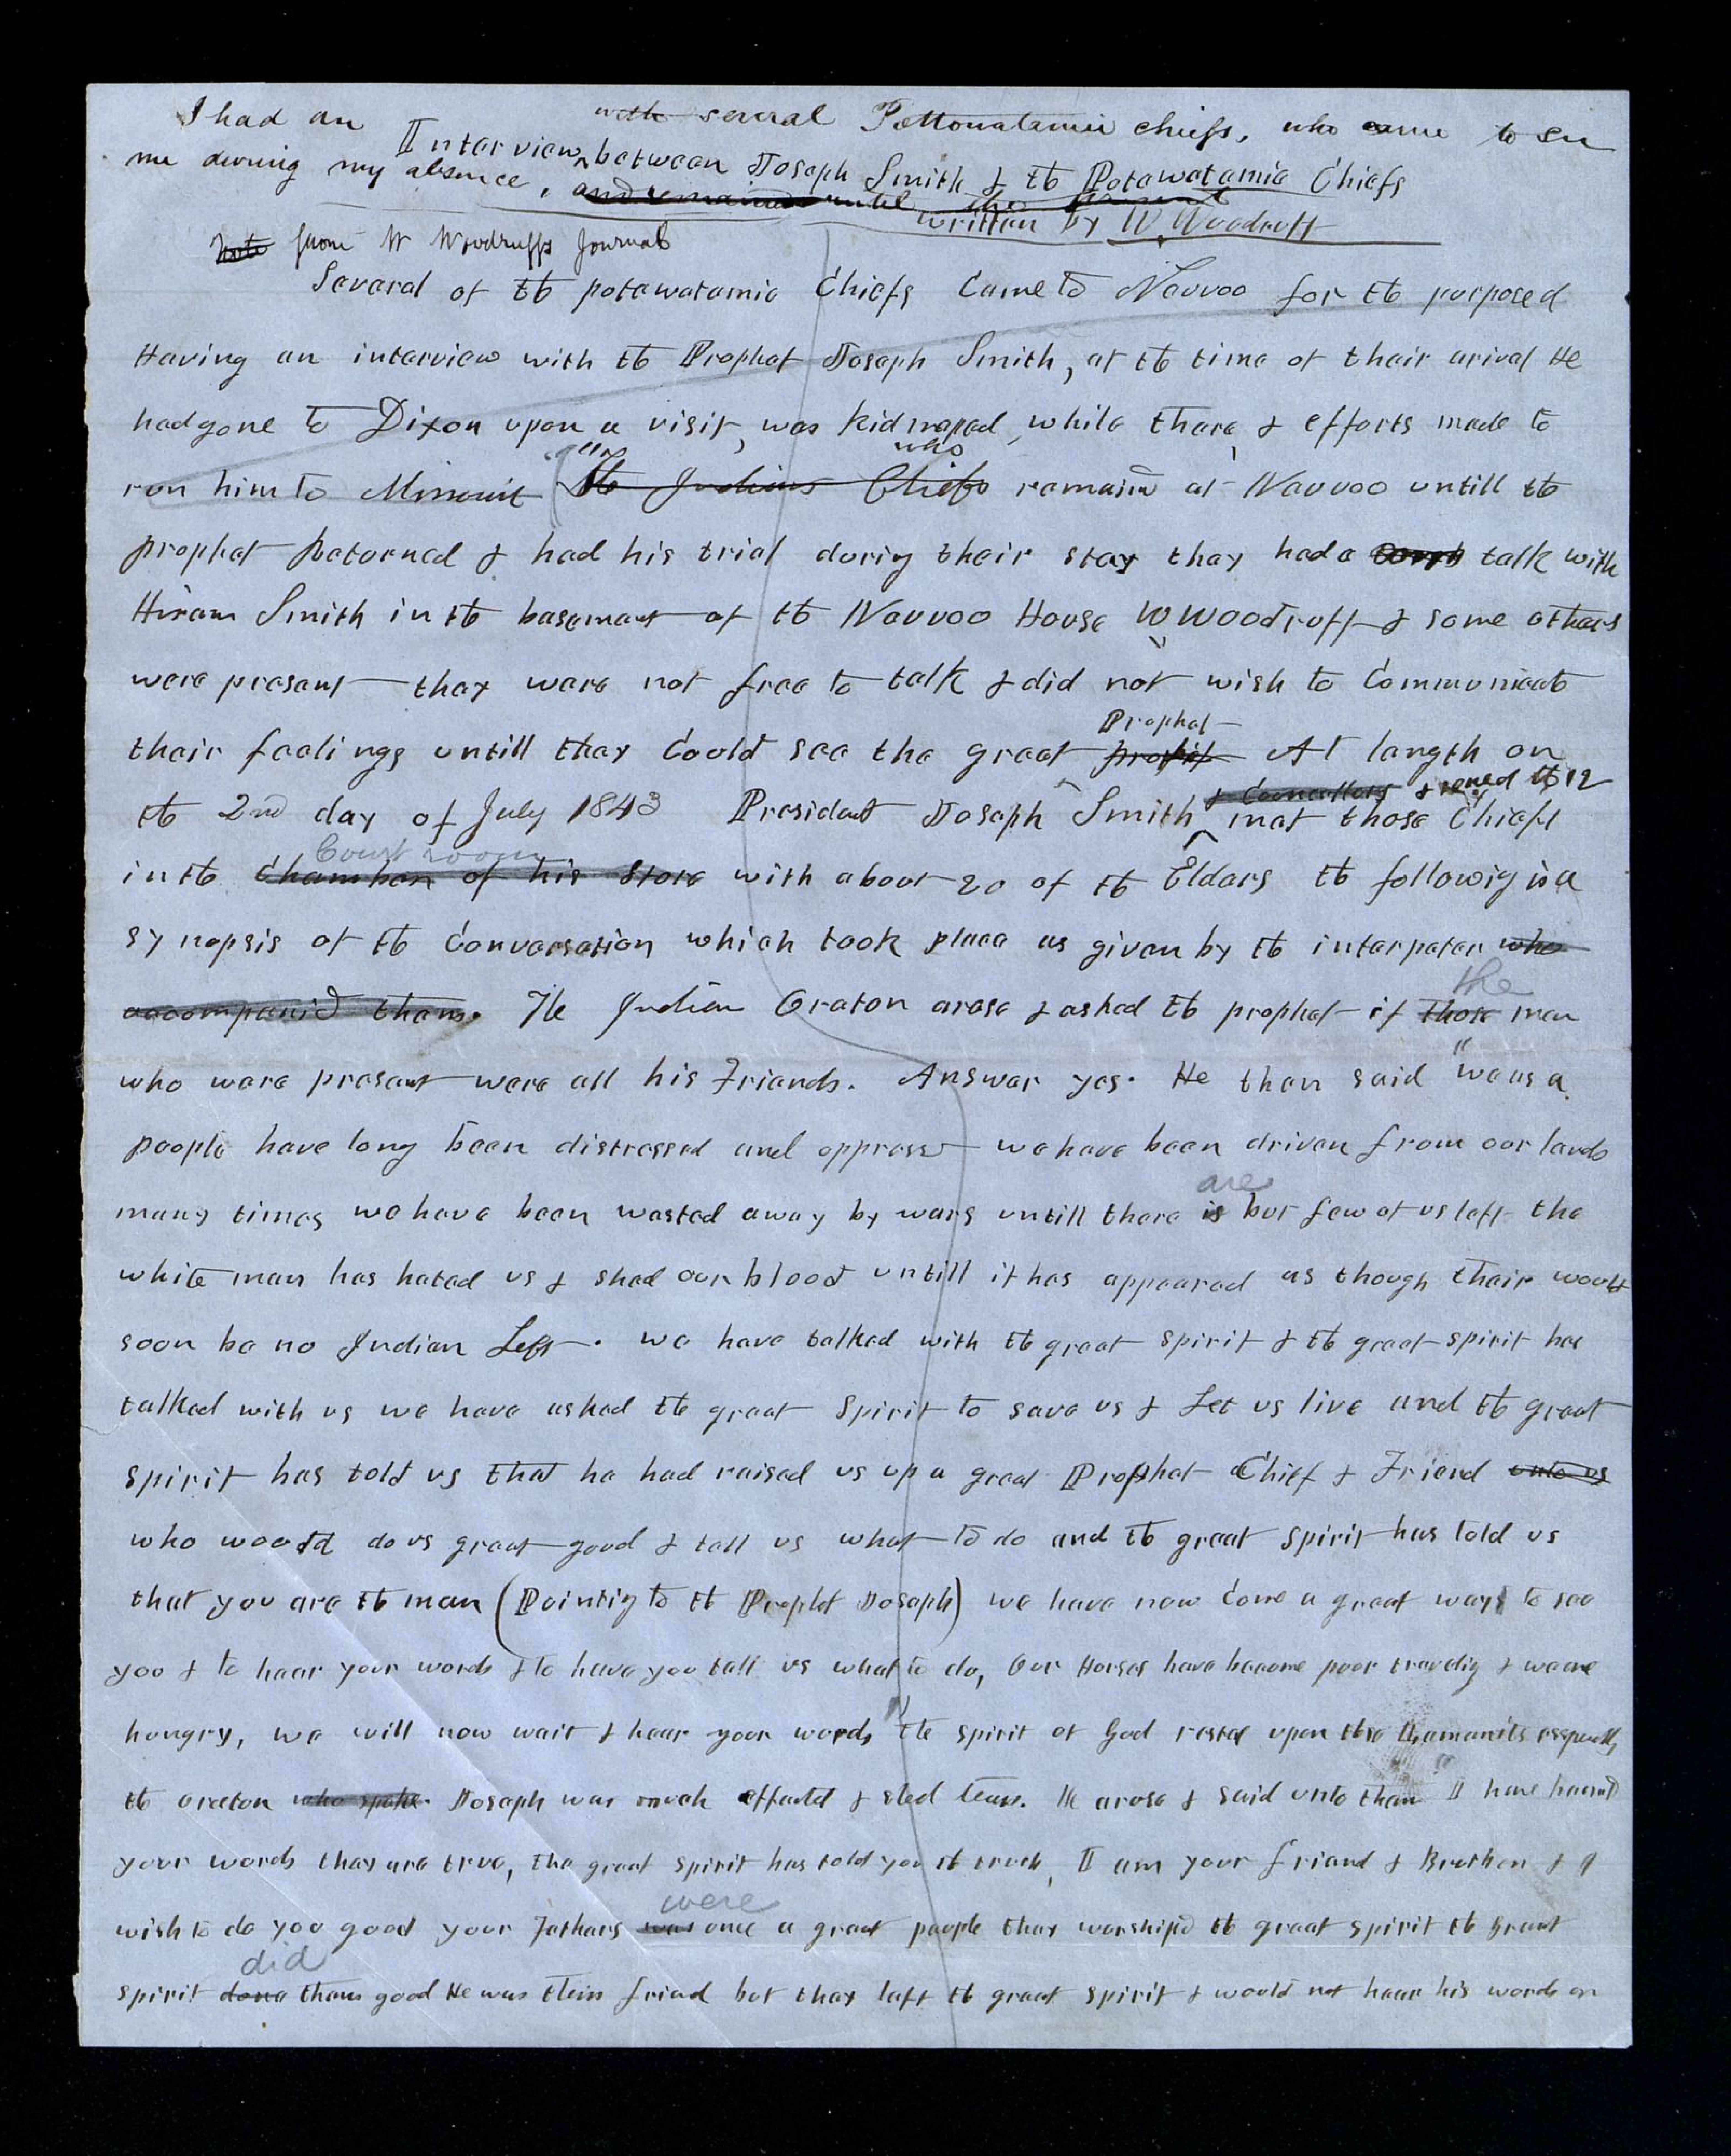 I had an with several Pottowatamie chiefs, who came to see
Interview between Joseph Smith & the Potawatamie Chiefs
me during my absence, and remained until the
written by W. Woodruff
from W Woodruffs Journal
Several of the potawatamie Chiefs Came to Nauvoo for the purposed
Having an interview with the Prophet Joseph Smith, at the time of their arival He
had gone to Dixon upon a visit, was kidnaped while there, & efforts made to
run him to Missouri "The Indians Chiefs who remaind at Nauvoo untill the
prophet Returned & had his trial during their stay they had a talk with
Hiram Smith in the basement of the Nauvoo House W Woodruff & some others
were present they were not free to talk & did not wish to Communicate
their feelings untill they Could see the great Prophet At length on
the 2nd day of July 1843 President Joseph Smith & Councellors & seved the 12 met those Chiefs
in the Chamber of his Store Court room with about 20 of the Elders the following is a
synopsis of the Conversation which took place as given by the interpeter who
accompanid them. The Indian Orator arose & asked the prophet if those the men
who were present were all his Friends. Answer yes. He then said "we as a
people have long been distressed and oppress we have been driven from our lands
many times we have been wasted away by wars untill there is are but few of us left the
white man has hated us & shed our blood untill it has appeared as though their would
soon be no Indian Left. we have talked with the great spirit & the great spirit has
talked with us we have asked the great Spirit to save us & Let us live and the great
spirit has told us that he had raised us up a great Prophet Chief & Friend unto us
who would do us great good & tell us what to do and the great spirit has told us
that you are the man (Pointing to the Prophet Joseph) we have now Come a great way to see
you & to hear your words & to have you tell us what to do, Our Horses have become poor traveling & we are
hungry, we will now wait & hear your words" The spirit of God rested upon the Lamanits especially
the orator who spoke. Joseph was much affected & shed tears. He arose & said unto them "I have heard
your words they are true, the great spirit has told you the truth, I am your friend & Brother & I
wish to do you good your Fathers was were once a great people they worshipd the great spirit the great
spirit done did them good He was their friend but they left the great spirit & would not hear his words or